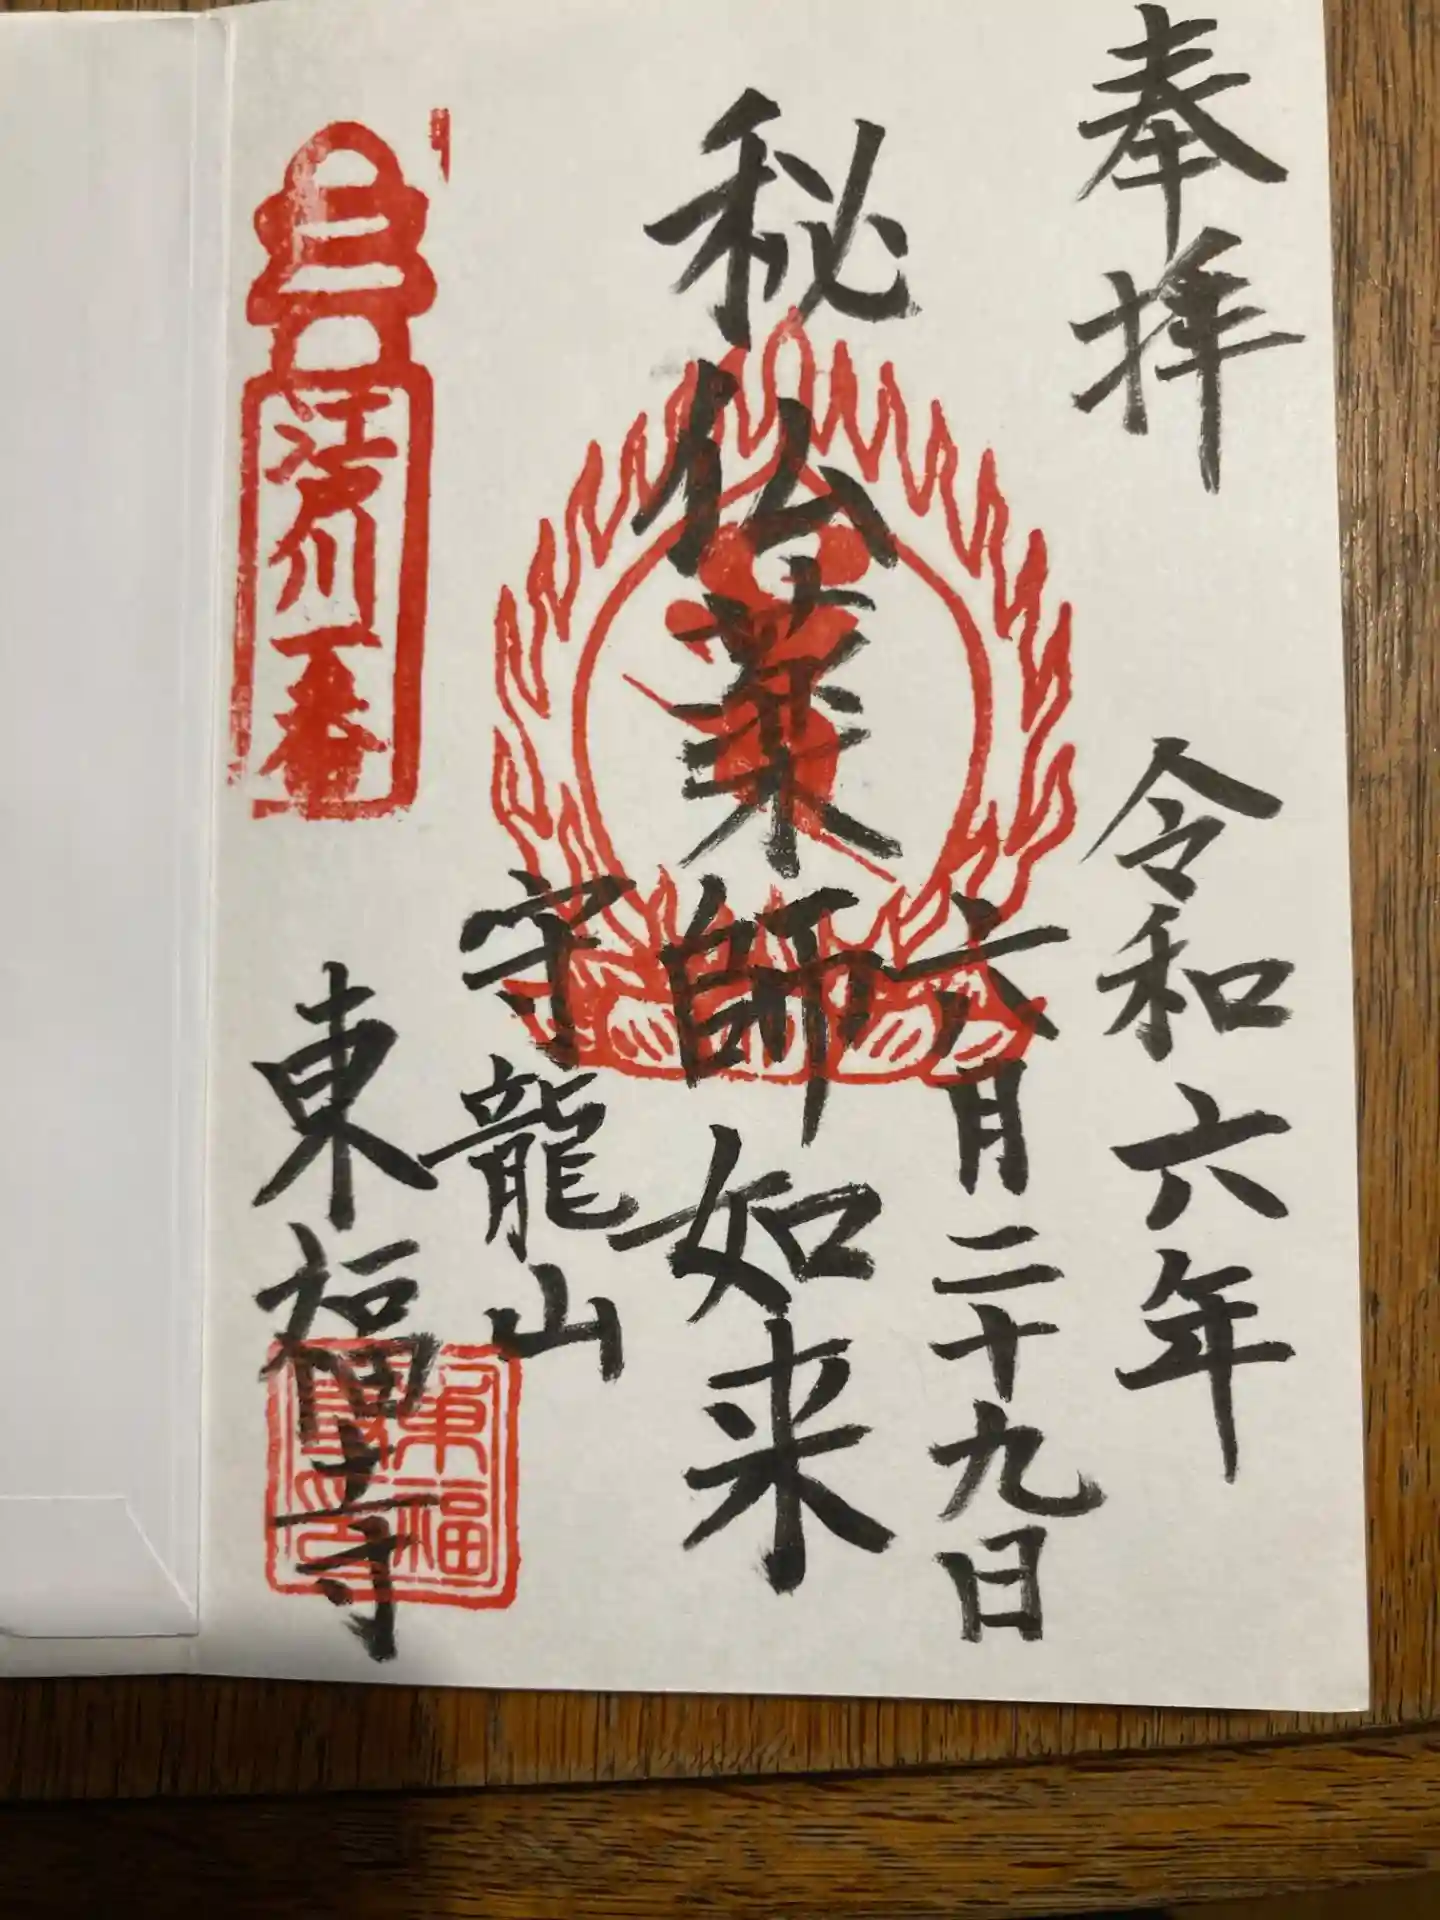 奉拝
令和六年
六月二十九日
秘仏薬師如来
守龍山
東福寺
江戸川
番
東福